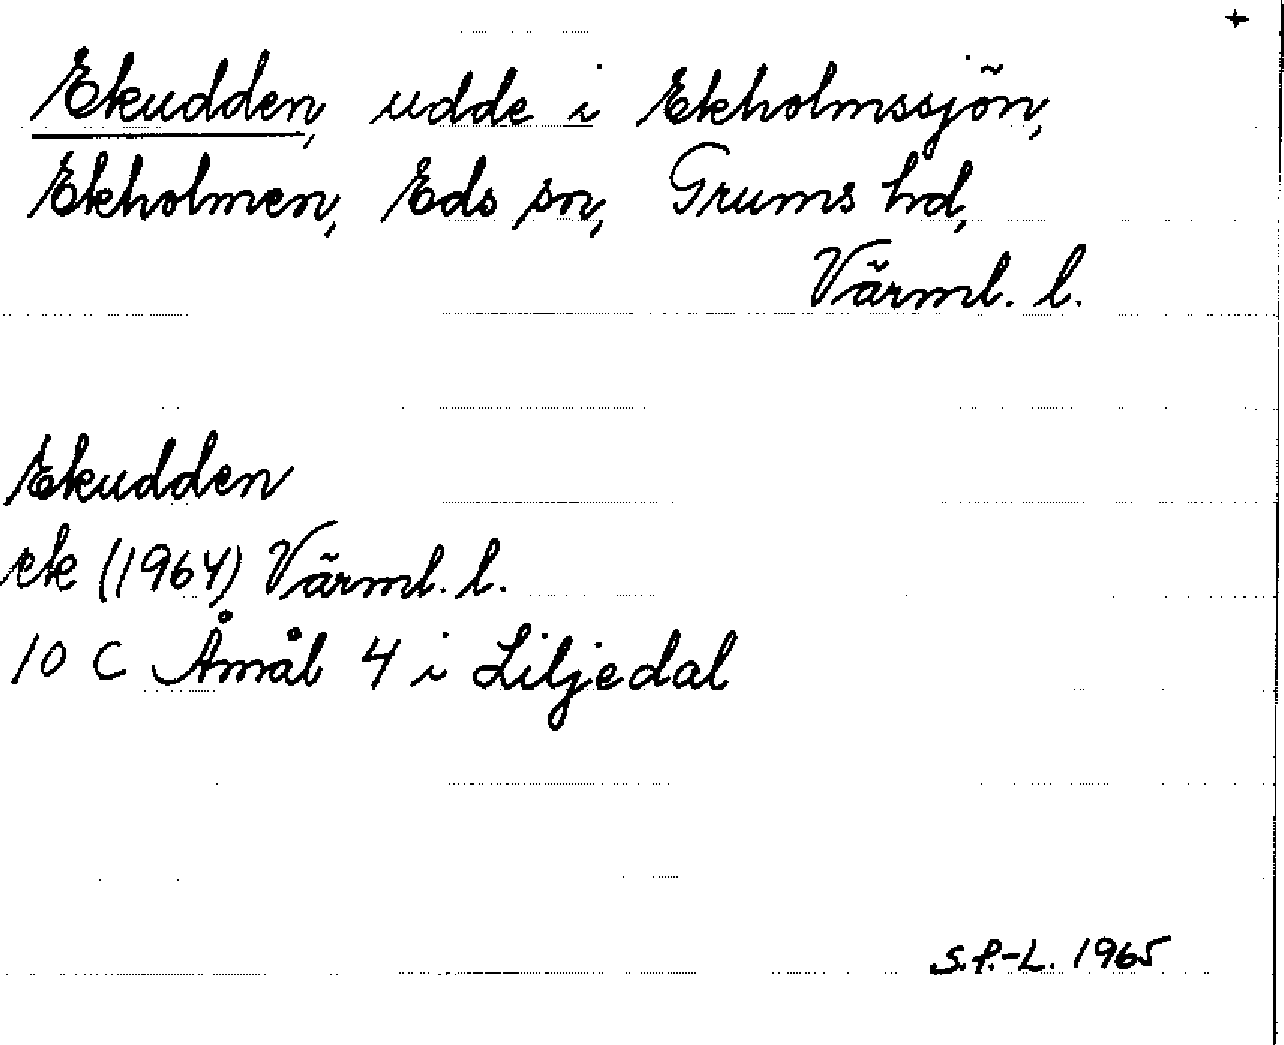 +
Ekudden, udde i Ekholmssjön,
Ekholmen, Eds sn, Grums hd,
Värml. l.
Ekudden
ek (1964) Värml. l.
10 C Åmål 4 i Liljedal
S.P.-L. 1965